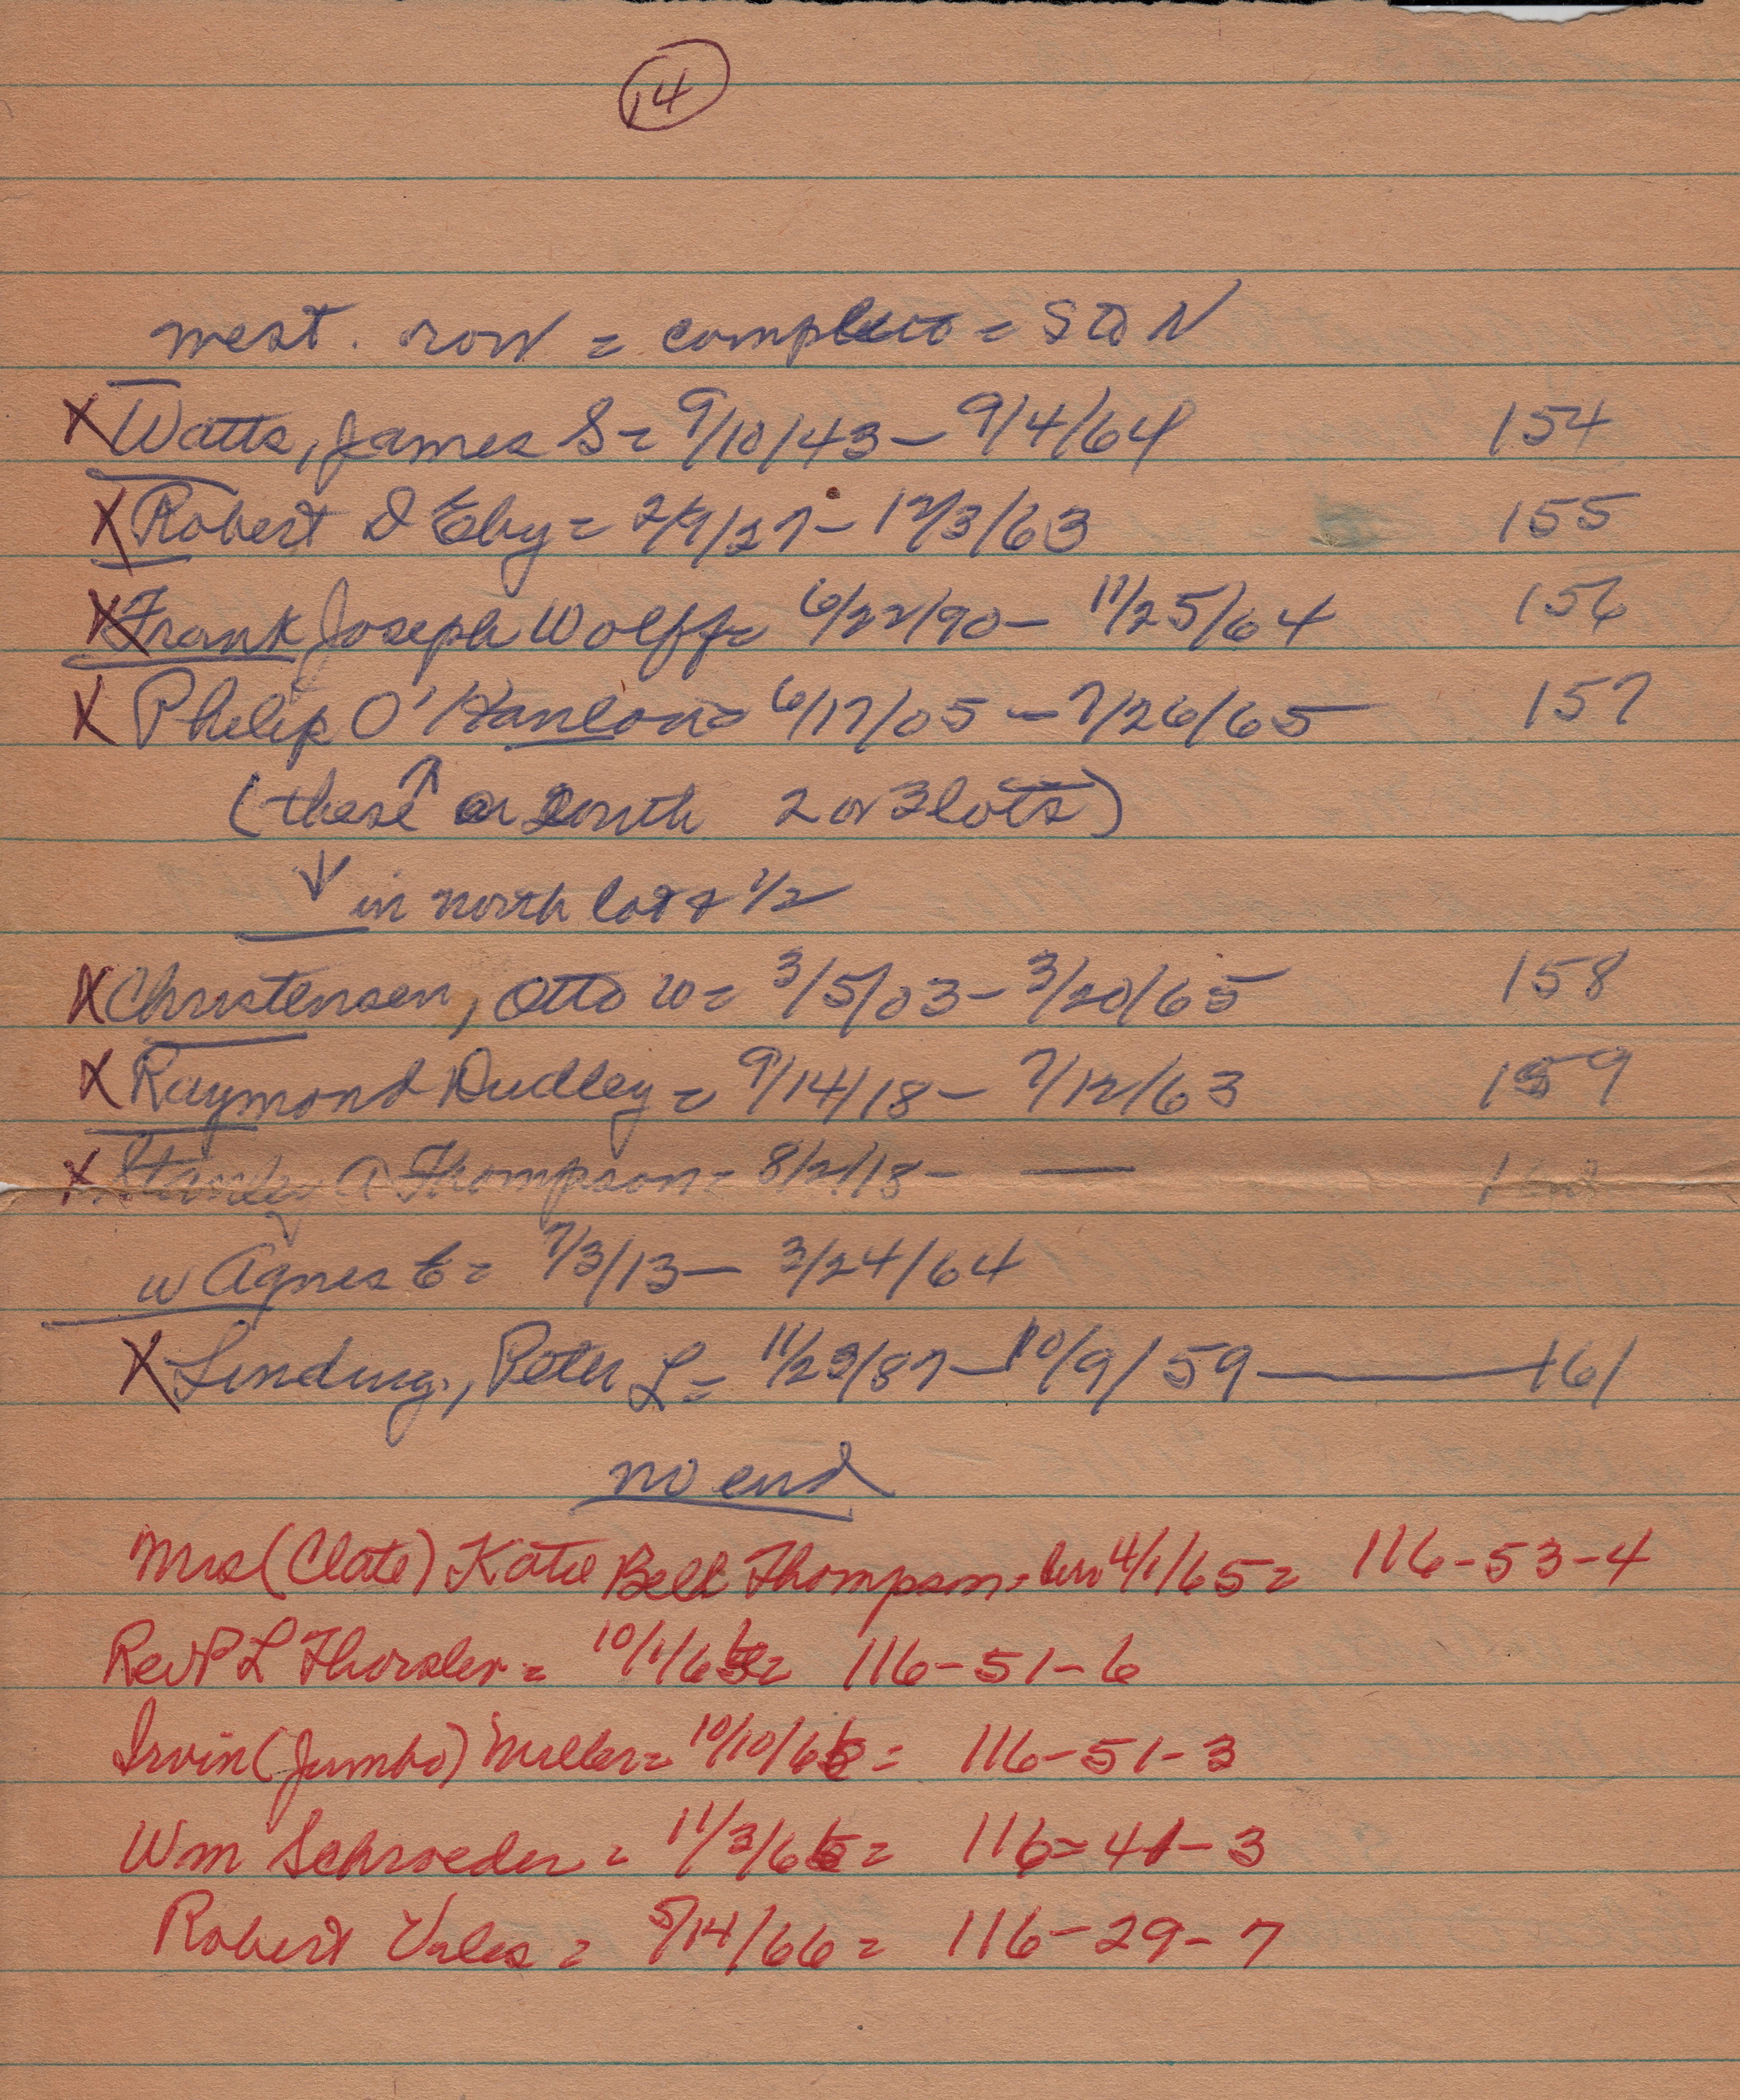 14
west. row = complete = S to N
X Watts, James S = 9/10/43 - 9/4/64 154
X Robert D Eby = 12/3/63 155
X Frank Joseph Wolff = 6/22/90 - 11/25/64 156
X Philip O'Hanlon = 6/17/05 - 7/26/65 157
(these ↑ south 2 or 3 lots)
↓ in north lot & 1/2
X Christensen, Otto W = 3/5/03 - 3/20/65 158
X Raymond Dudley = 9/14/18 - 7/12/63 159
X Stanley A Thompson = 8/2/18 - —
w Agnes E = 7/3/13 - 3/24/64
X Peter L = 11/23/87 - 10/9/59 — 161
no end
Mrs (Clate) Katie Bell Thompson - 4/1/65 = 116-53-4
Rev P L Thorsler = 116-51-6
Irvin (Jumbo) Miller = 116-51-3
Wm Schroeder = 116 = 41-3
Robert = 5/14/66 = 116-29-7